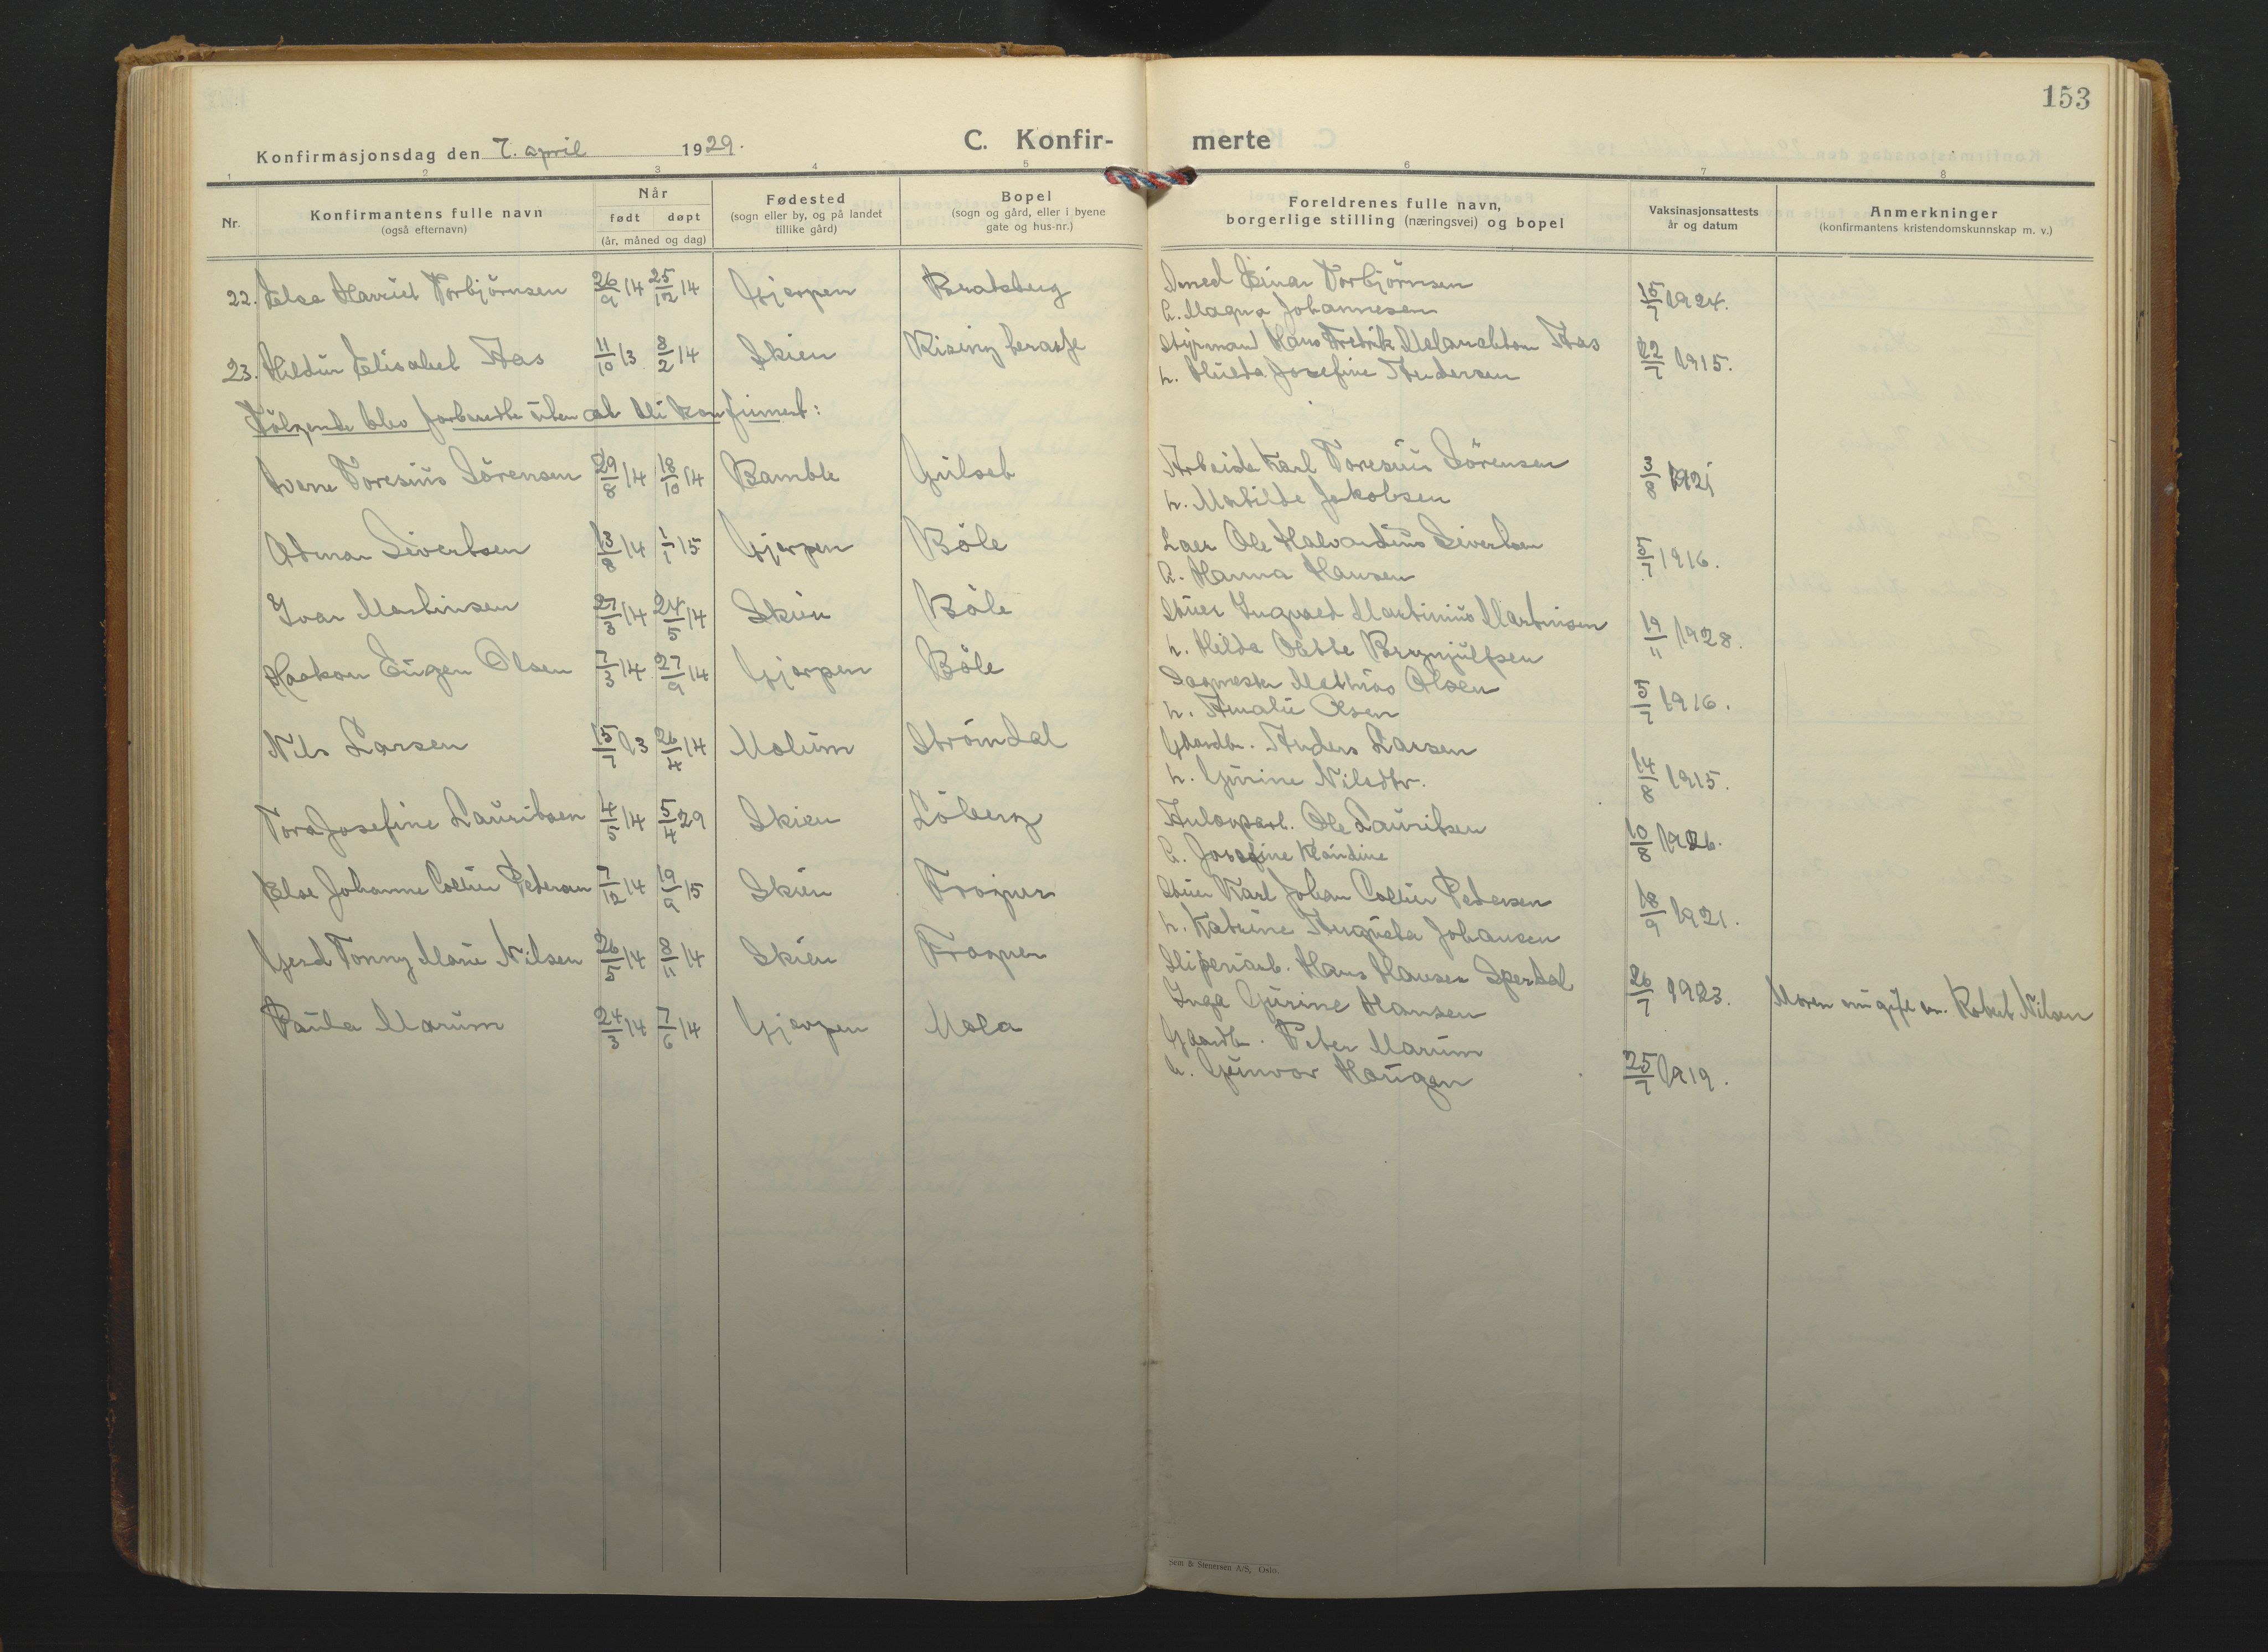 153
Konfirmasjonsdag den 7. april 1929.
C. Konfir- merte
1 2 3 4 5 6 7 8
Nr.
Konfirmantens fulle navn
(også efternavn)
Når
født døpt
(år, måned og dag)
Fødested
(sogn eller by, og på landet
tillike gård)
Bopel
(sogn og gård, eller i byene
gate og hus-nr.)
Foreldrenes fulle navn,
borgerlige stilling (næringsvei) og bopel
Vaksinasjonsattests
år og datum
Anmerkninger
(konfirmantens kristendomskunnskap m. v.)
22. Else Harriet Torbjörnsen 26/9 14 25/12 14 Gjerpen Bratsberg Smed Einar Torbjörnsen 15/7 1924.
h. Magna Johannesen
23. Hildur Elisabet Aas 11/10 13 8/2 14 Skien Kising terasse Styrmand Hans Fredrik Melanchton Aas 22/7 1915.
h. Hulda Josefine Andersen
Følgende blev forberedte uten at bli konfirmert:
Sverre Toresius Sörensen 29/8 14 18/10 14 Bamble Gulset Arbeider Karl Toresius Sörensen 3/8 1921
h. Matilde Jakobsen
Odmar Sivertsen 13/8 14 1/1 15 Gjerpen Böle Laer Ole Halvardius Sivertsen 5/7 1916.
h. Hanna Hansen
Ivar Martinsen 27/3 14 24/5 14 Skien Böle Stuer Ingvald Martinius Martinsen 19/11 1928.
h. Hilda Brynjulfsen
Haakon Eugen Olsen 7/3 14 27/9 14 Gjerpen Böle Sagmester Mathias Olsen 5/7 1916.
h. Amalie Olsen
Nils Larsen 15/7 13 26/4 14 Solum Strömdal Gaardbr. Anders Larsen 14/8 1915.
h. Gurine Nilsdtr.
Tora Josefine Lauritsen 4/5 14 5/4 29 Skien Löberg Anlægsarb. Ole Lauritsen 10/8 1926.
h. Josefine Klaudine
Else Johanne Collin Pedersen 7/12 14 19/9 15 Skien Frogner Stuer Karl Johan Collin Pedersen 18/9 1921.
h. Katrine Augusta Johansen
Gerd Tonny Marie Nilsen 26/5 14 8/11 14 Skien Frogner Sliperiarb. Hans Hansen Sperdal 26/7 1923. Moren nu gift m. Robert Nilsen
Inga Gurine Hansen
Paula Marum 24/3 14 7/6 14 Gjerpen Mæla Gaardbr. Peter Marum 25/7 1919.
h. Gunvor Haugen
Sem & Stenersen A/S, Oslo.